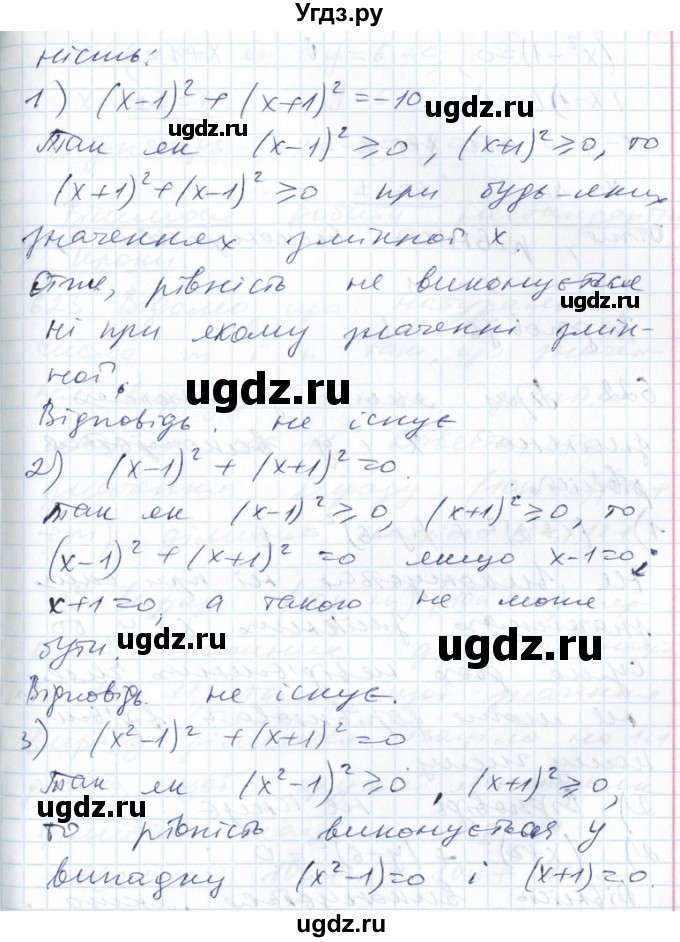 Угдз.ру
ність:
1) (x-1)² + (x+1)² = -10
Так як (x-1)² ≥ 0, (x+1)² ≥ 0, то
(x+1)² + (x-1)² ≥ 0 при будь-яких
значеннях змінної x.
Отже, рівність не виконується
ні при якому значенні змін-
ної.
Відповідь: не існує
2) (x-1)² + (x+1)² = 0.
Так як (x-1)² ≥ 0, (x+1)² ≥ 0, то
(x-1)² + (x+1)² = 0 якщо x-1=0 і
x+1=0, а такого не може
бути.
Відповідь. не існує.
3) (x²-1)² + (x+1)² = 0
Так як (x²-1)² ≥ 0, (x+1)² ≥ 0,
то рівність виконується у
випадку (x²-1)=0 і (x+1)=0.
ugdz.ru
ugdz.ru
ugdz.ru
ugdz.ru
ugdz.ru
ugdz.ru
ugdz.ru
ugdz.ru
ugdz.ru